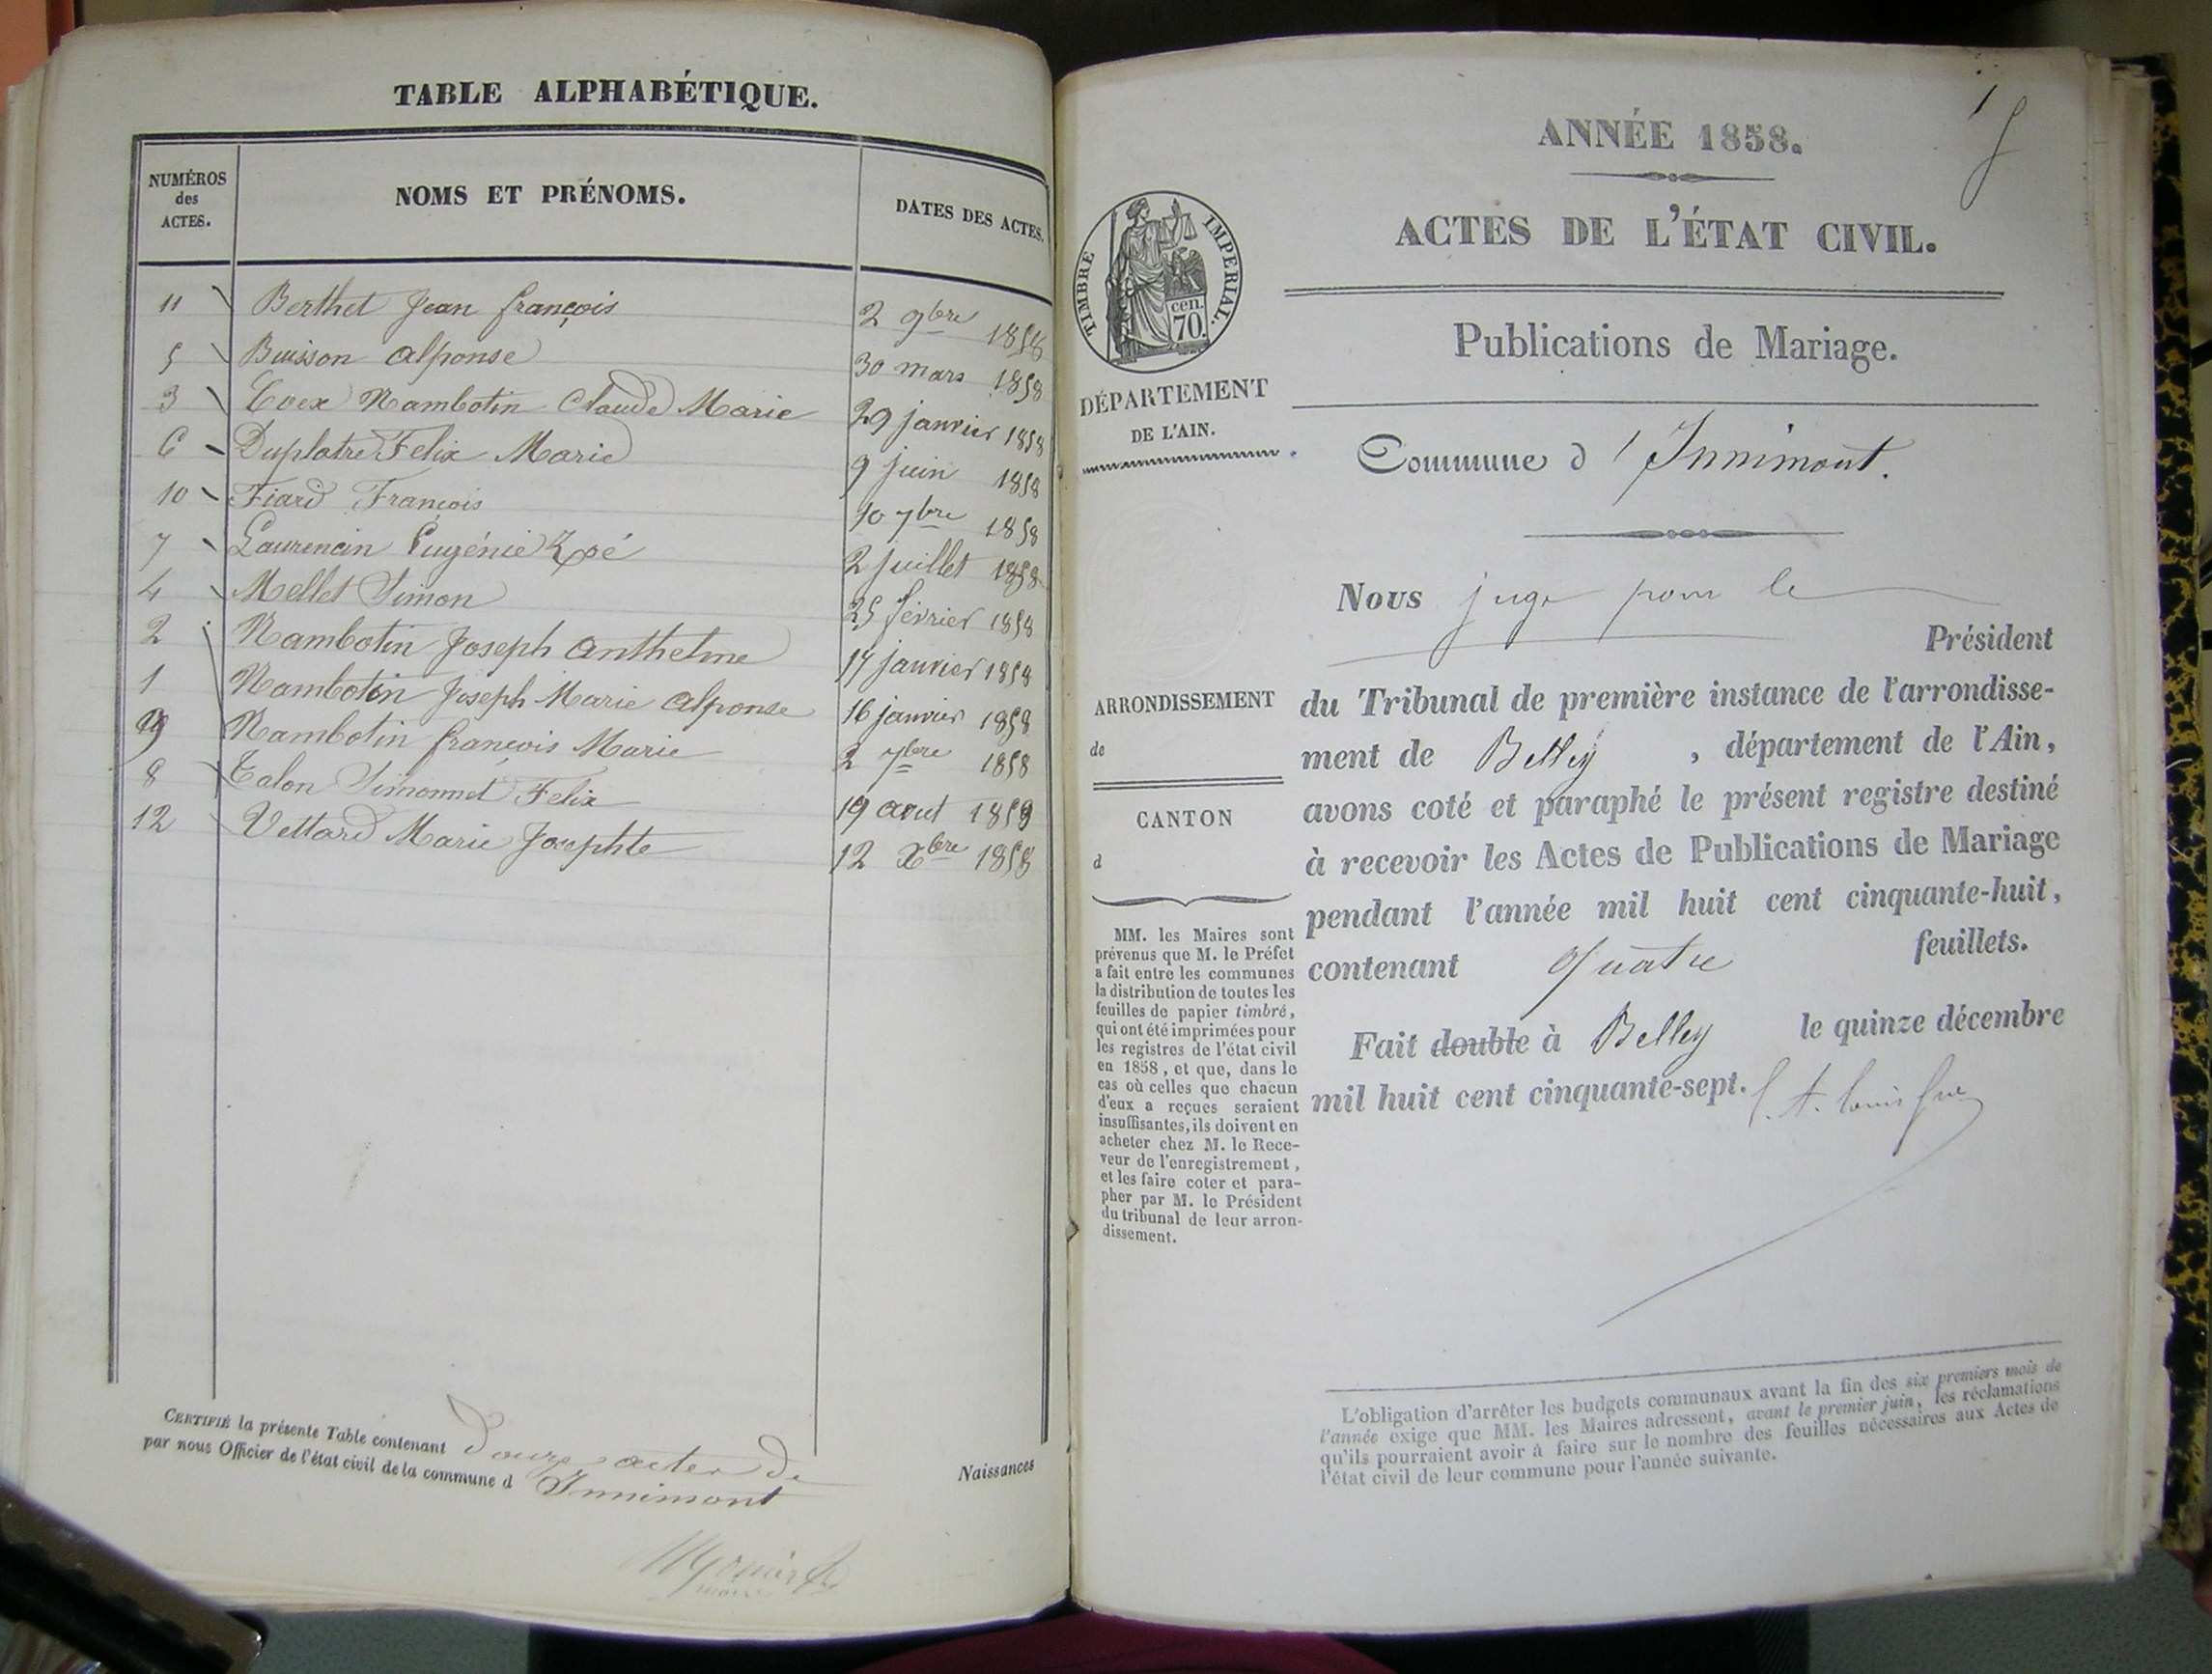 TABLE ALPHABÉTIQUE.
NUMÉROS des ACTES.
NOMS ET PRÉNOMS.
DATES DES ACTES.
11 Berthet Jean françois 2 9bre 1858
5 Buisson Alponse 30 mars 1858
3 Coex Nambotin Claude Marie 29 janvier 1858
6 Duplatre Felix Marie 9 juin 1858
10 Fiard François 10 7bre 1858
7 Laurencin Eugénie Zoé 2 juillet 1858
4 Mellet Simon 25 février 1858
2 Nambotin Joseph Anthelme 17 janvier 1858
1 Nambotin Joseph Marie Alponse 16 janvier 1858
9 Nambotin françois Marie 2 7bre 1858
8 Talon Simonnet Felix 19 aout 1858
12 Vettard Marie Josephte 12 Xbre 1858
CERTIFIÉ la présente Table contenant Douze actes de Naissances
par nous Officier de l'état civil de la commune d Innimont
ANNÉE 1858.
ACTES DE L'ÉTAT CIVIL.
TIMBRE IMPÉRIAL.
cen.
70.
DÉPARTEMENT
DE L'AIN.
Publications de Mariage.
Commune d'Innimont.
Nous juge pour le
Président
du Tribunal de première instance de l'arrondisse-
ment de Belley, département de l'Ain,
avons coté et paraphé le présent registre destiné
à recevoir les Actes de Publications de Mariage
pendant l'année mil huit cent cinquante-huit,
contenant quatre feuillets.
Fait double à Belley le quinze décembre
mil huit cent cinquante-sept.
ARRONDISSEMENT
de
CANTON
d
MM. les Maires sont
prévenus que M. le Préfet
a fait entre les communes
la distribution de toutes les
feuilles de papier timbré,
qui ont été imprimées pour
les registres de l'état civil
en 1858, et que, dans le
cas où celles que chacun
d'eux a reçues seraient
insuffisantes, ils doivent en
acheter chez M. le Rece-
veur de l'enregistrement,
et les faire coter et para-
pher par M. le Président
du tribunal de leur arron-
dissement.
L'obligation d'arrêter les budgets communaux avant la fin des six premiers mois de
l'année exige que MM. les Maires adressent, avant le premier juin, les réclamations
qu'ils pourraient avoir à faire sur le nombre des feuilles nécessaires aux Actes de
l'état civil de leur commune pour l'année suivante.